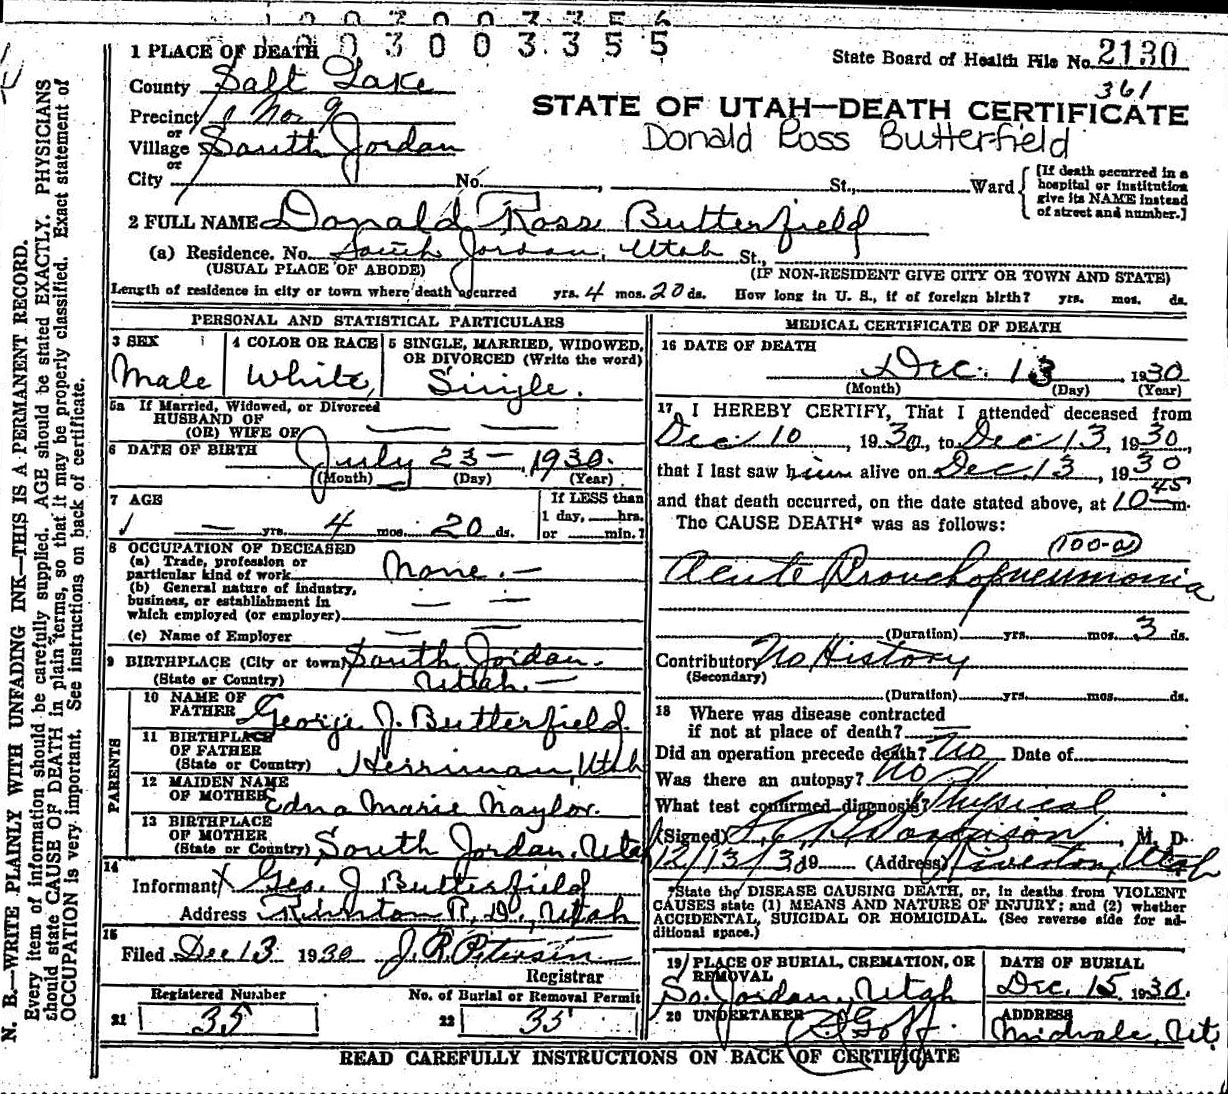 1003003355
1 PLACE OF DEATH
State Board of Health File No. 2130
361
County Salt Lake
STATE OF UTAH—DEATH CERTIFICATE
Precinct No 9
Donald Ross Butterfield
or
Village South Jordan
or
City No. , St., Ward
[If death occurred in a
hospital or institution
give its NAME instead
of street and number.]
2 FULL NAME Donald Ross Butterfield
(a) Residence. No. South Jordan, Utah St.,
(USUAL PLACE OF ABODE) (IF NON-RESIDENT GIVE CITY OR TOWN AND STATE)
Length of residence in city or town where death occurred yrs. 4 mos. 20 ds. How long in U. S., if of foreign birth? yrs. mos. ds.
PERSONAL AND STATISTICAL PARTICULARS
3 SEX
Male
4 COLOR OR RACE
White
5 SINGLE, MARRIED, WIDOWED,
OR DIVORCED (Write the word)
Single.
5a If Married, Widowed, or Divorced
HUSBAND OF
(OR) WIFE OF
6 DATE OF BIRTH July 23 — 1930.
(Month) (Day) (Year)
7 AGE
— yrs. 4 mos. 20 ds.
If LESS than
1 day, hrs.
or min.?
8 OCCUPATION OF DECEASED
(a) Trade, profession or
particular kind of work None. —
(b) General nature of industry,
business, or establishment in
which employed (or employer)
(c) Name of Employer
9 BIRTHPLACE (City or town) South Jordan.
(State or Country) Utah. —
PARENTS
10 NAME OF
FATHER George J. Butterfield.
11 BIRTHPLACE
OF FATHER
(State or Country) Herriman, Utah
12 MAIDEN NAME
OF MOTHER Edna Marie Naylor.
13 BIRTHPLACE
OF MOTHER
(State or Country) South Jordan, Utah
14
Informant X Geo. J Butterfield
Address Riverton R. D., Utah
15
Filed Dec 13 1930 J. R. Peterson
Registrar
Registered Number No. of Burial or Removal Permit
21 35 22 35
MEDICAL CERTIFICATE OF DEATH
16 DATE OF DEATH
Dec. 13, 1930
(Month) (Day) (Year)
17 I HEREBY CERTIFY, That I attended deceased from
Dec 10, 1930, to Dec 13, 1930,
that I last saw him alive on Dec 13, 1930
and that death occurred, on the date stated above, at 10 45 m.
The CAUSE DEATH* was as follows:
100-a
Acute Bronchopneumonia
(Duration) yrs. mos. 3 ds.
Contributory No History
(Secondary)
(Duration) yrs. mos. ds.
18 Where was disease contracted
if not at place of death?
Did an operation precede death? No Date of
Was there an autopsy? No
What test confirmed diagnosis? Physical
(Signed) , M. D.
12/13/3019 (Address) Riverton, Utah
*State the DISEASE CAUSING DEATH, or, in deaths from VIOLENT
CAUSES state (1) MEANS AND NATURE OF INJURY; and (2) whether
ACCIDENTAL, SUICIDAL OR HOMICIDAL. (See reverse side for ad-
ditional space.)
19 PLACE OF BURIAL, CREMATION, OR
REMOVAL
So. Jordan, Utah
DATE OF BURIAL
Dec. 15 1930.
20 UNDERTAKER Goff.
ADDRESS
Midvale, Ut.
READ CAREFULLY INSTRUCTIONS ON BACK OF CERTIFICATE
N. B.—WRITE PLAINLY WITH UNFADING INK—THIS IS A PERMANENT RECORD.
Every item of information should be carefully supplied. AGE should be stated EXACTLY. PHYSICIANS
should state CAUSE OF DEATH in plain terms, so that it may be properly classified. Exact statement of
OCCUPATION is very important. See instructions on back of certificate.